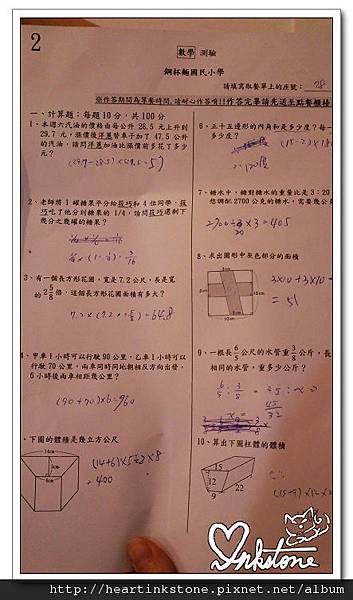 2
數學 測驗
鋼杯麵國民小學
請填寫取餐單上的座號: 28
※作答期間為等餐時間,請耐心作答唷!!作答完畢請先送至點餐櫃檯
一、計算題:每題10分,共100分
1、本週六汽油的價格由每公升 28.5 元上升到
29.7 元,漲價後漂蔥替車子加了 47.5 公升
的汽油,請問漂蔥加油比漲價前多花了多少
元?
(29.7-28.5)×47.5=57
2、老師將1罐糖果平分給菈巧和4位同學,菈
巧吃了他分到糖果的 1/4,請問菈巧還剩下
幾分之幾罐的糖果?
3、有一個長方形花圃,寬是7.2公尺,長是寬
的 2 5/8 倍,這個長方形花圃面積有多大?
4、甲車1小時可以行駛90公里,乙車1小時可以
行駛70公里,兩車同時同地朝相反方向出發,
6小時後兩車相距幾公里?
(90+70)×6=960
、下圖的體積是幾立方公尺
14cm
6cm
(14+6)×5÷2×8
=400
6、正十五邊形的內角和是多少度?每一
多少度?
7、糖水中,糖對糖水的重量比是3:20
想調配2700公克的糖水,需要幾公
2700÷20×3=405
8、求出圖形中灰色部分的面積
3×10+3×10-
=51
9、一根長 6/5 公尺的水管重 3/8 公斤,長
相同的水管,重多少公斤?
10、算出下圖柱體的體積
15
12
9
22
Inkstone
http://heartinkstone.pixnet.net/album